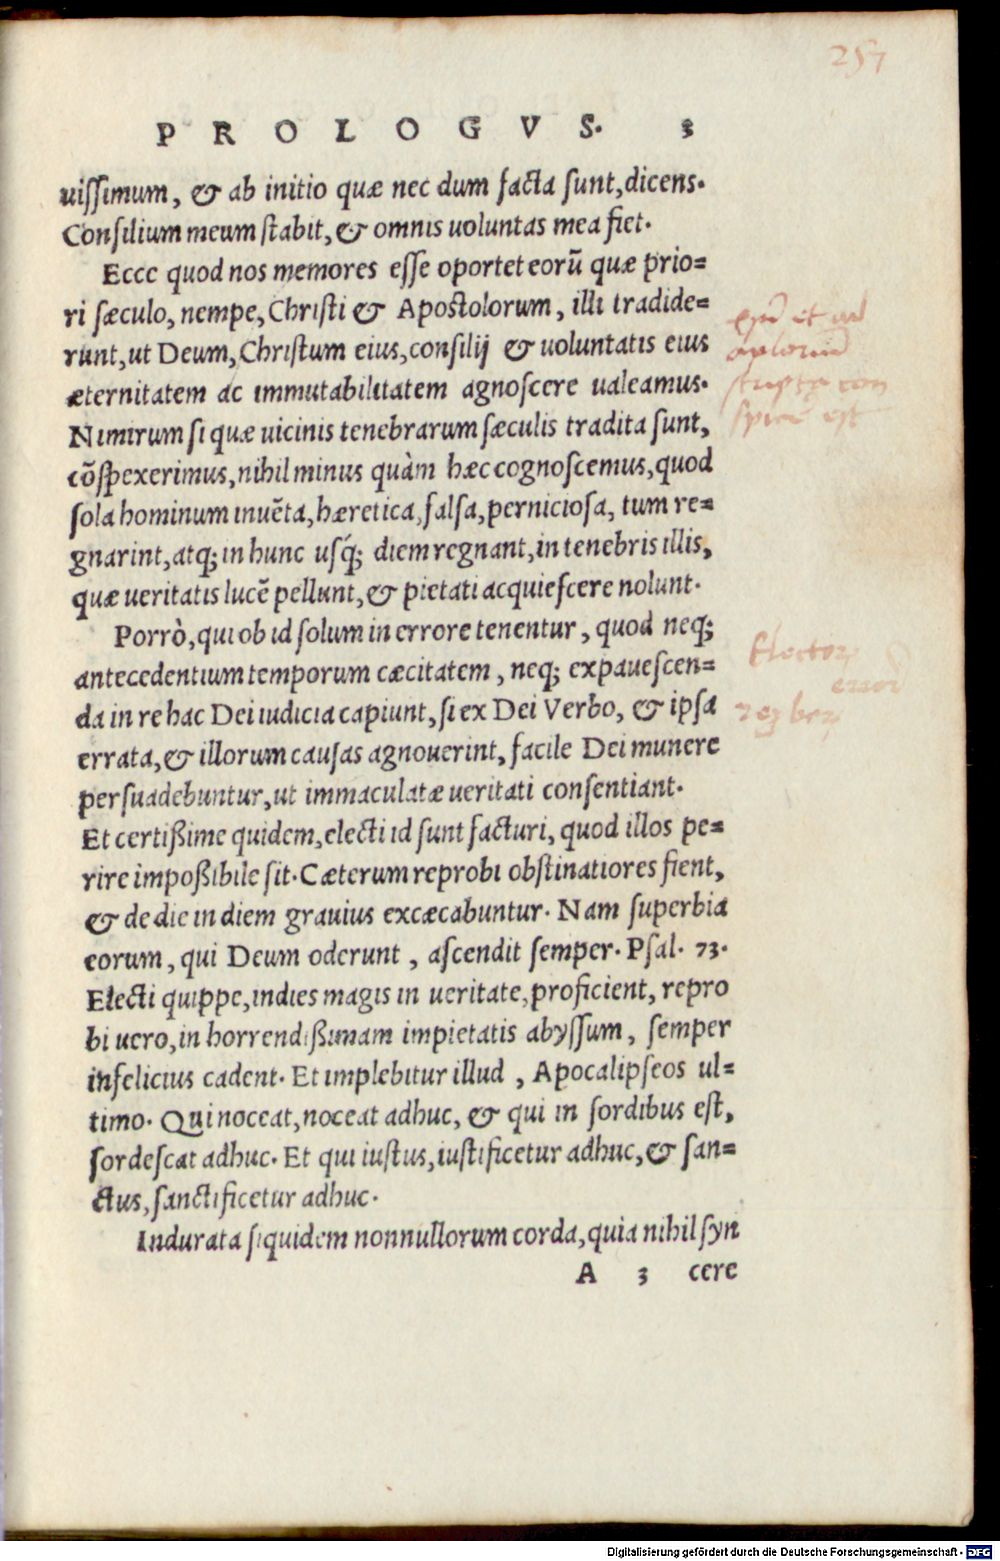 257
PROLOGVS. 3
uissimum, & ab initio quæ nec dum facta sunt, dicens.
Consilium meum stabit, & omnis uoluntas mea fiet.
Ecce quod nos memores esse oportet eorū quæ prio=
ri sæculo, nempe, Christi & Apostolorum, illi tradide=
runt, ut Deum, Christum eius, consilij & uoluntatis eius
æternitatem ac immutabilitatem agnoscere ualeamus.
Nimirum si quæ uicinis tenebrarum sæculis tradita sunt,
cōspexerimus, nihil minus quàm hæc cognoscemus, quod
sola hominum inuēta, hæretica, falsa, perniciosa, tum re=
gnarint, atq; in hunc usq́; diem regnant, in tenebris illis,
quæ ueritatis lucē pellunt, & pietati acquiescere nolunt.
Porrò, qui ob id solum in errore tenentur, quod neq;
antecedentium temporum cæcitatem, neq; expauescen=
da in re hac Dei iudicia capiunt, si ex Dei Verbo, & ipsa
errata, & illorum causas agnouerint, facile Dei munere
persuadebuntur, ut immaculatæ ueritati consentiant.
Et certißime quidem, electi id sunt facturi, quod illos pe=
rire impoßibile sit. Cæterum reprobi obstinatiores fient,
& de die in diem grauius excæcabuntur. Nam superbia
eorum, qui Deum oderunt, ascendit semper. Psal. 73.
Electi quippe, indies magis in ueritate, proficient, repro
bi uero, in horrendißimam impietatis abyssum, semper
infelicius cadent. Et implebitur illud, Apocalipseos ul=
timo. Qui noceat, noceat adhuc, & qui in sordibus est,
sordescat adhuc. Et qui iustus, iustificetur adhuc, & san=
ctus, sanctificetur adhuc.
Indurata siquidem nonnullorum corda, quia nihil syn
A 3 cere
Digitalisierung gefördert durch die Deutsche Forschungsgemeinschaft - DFG